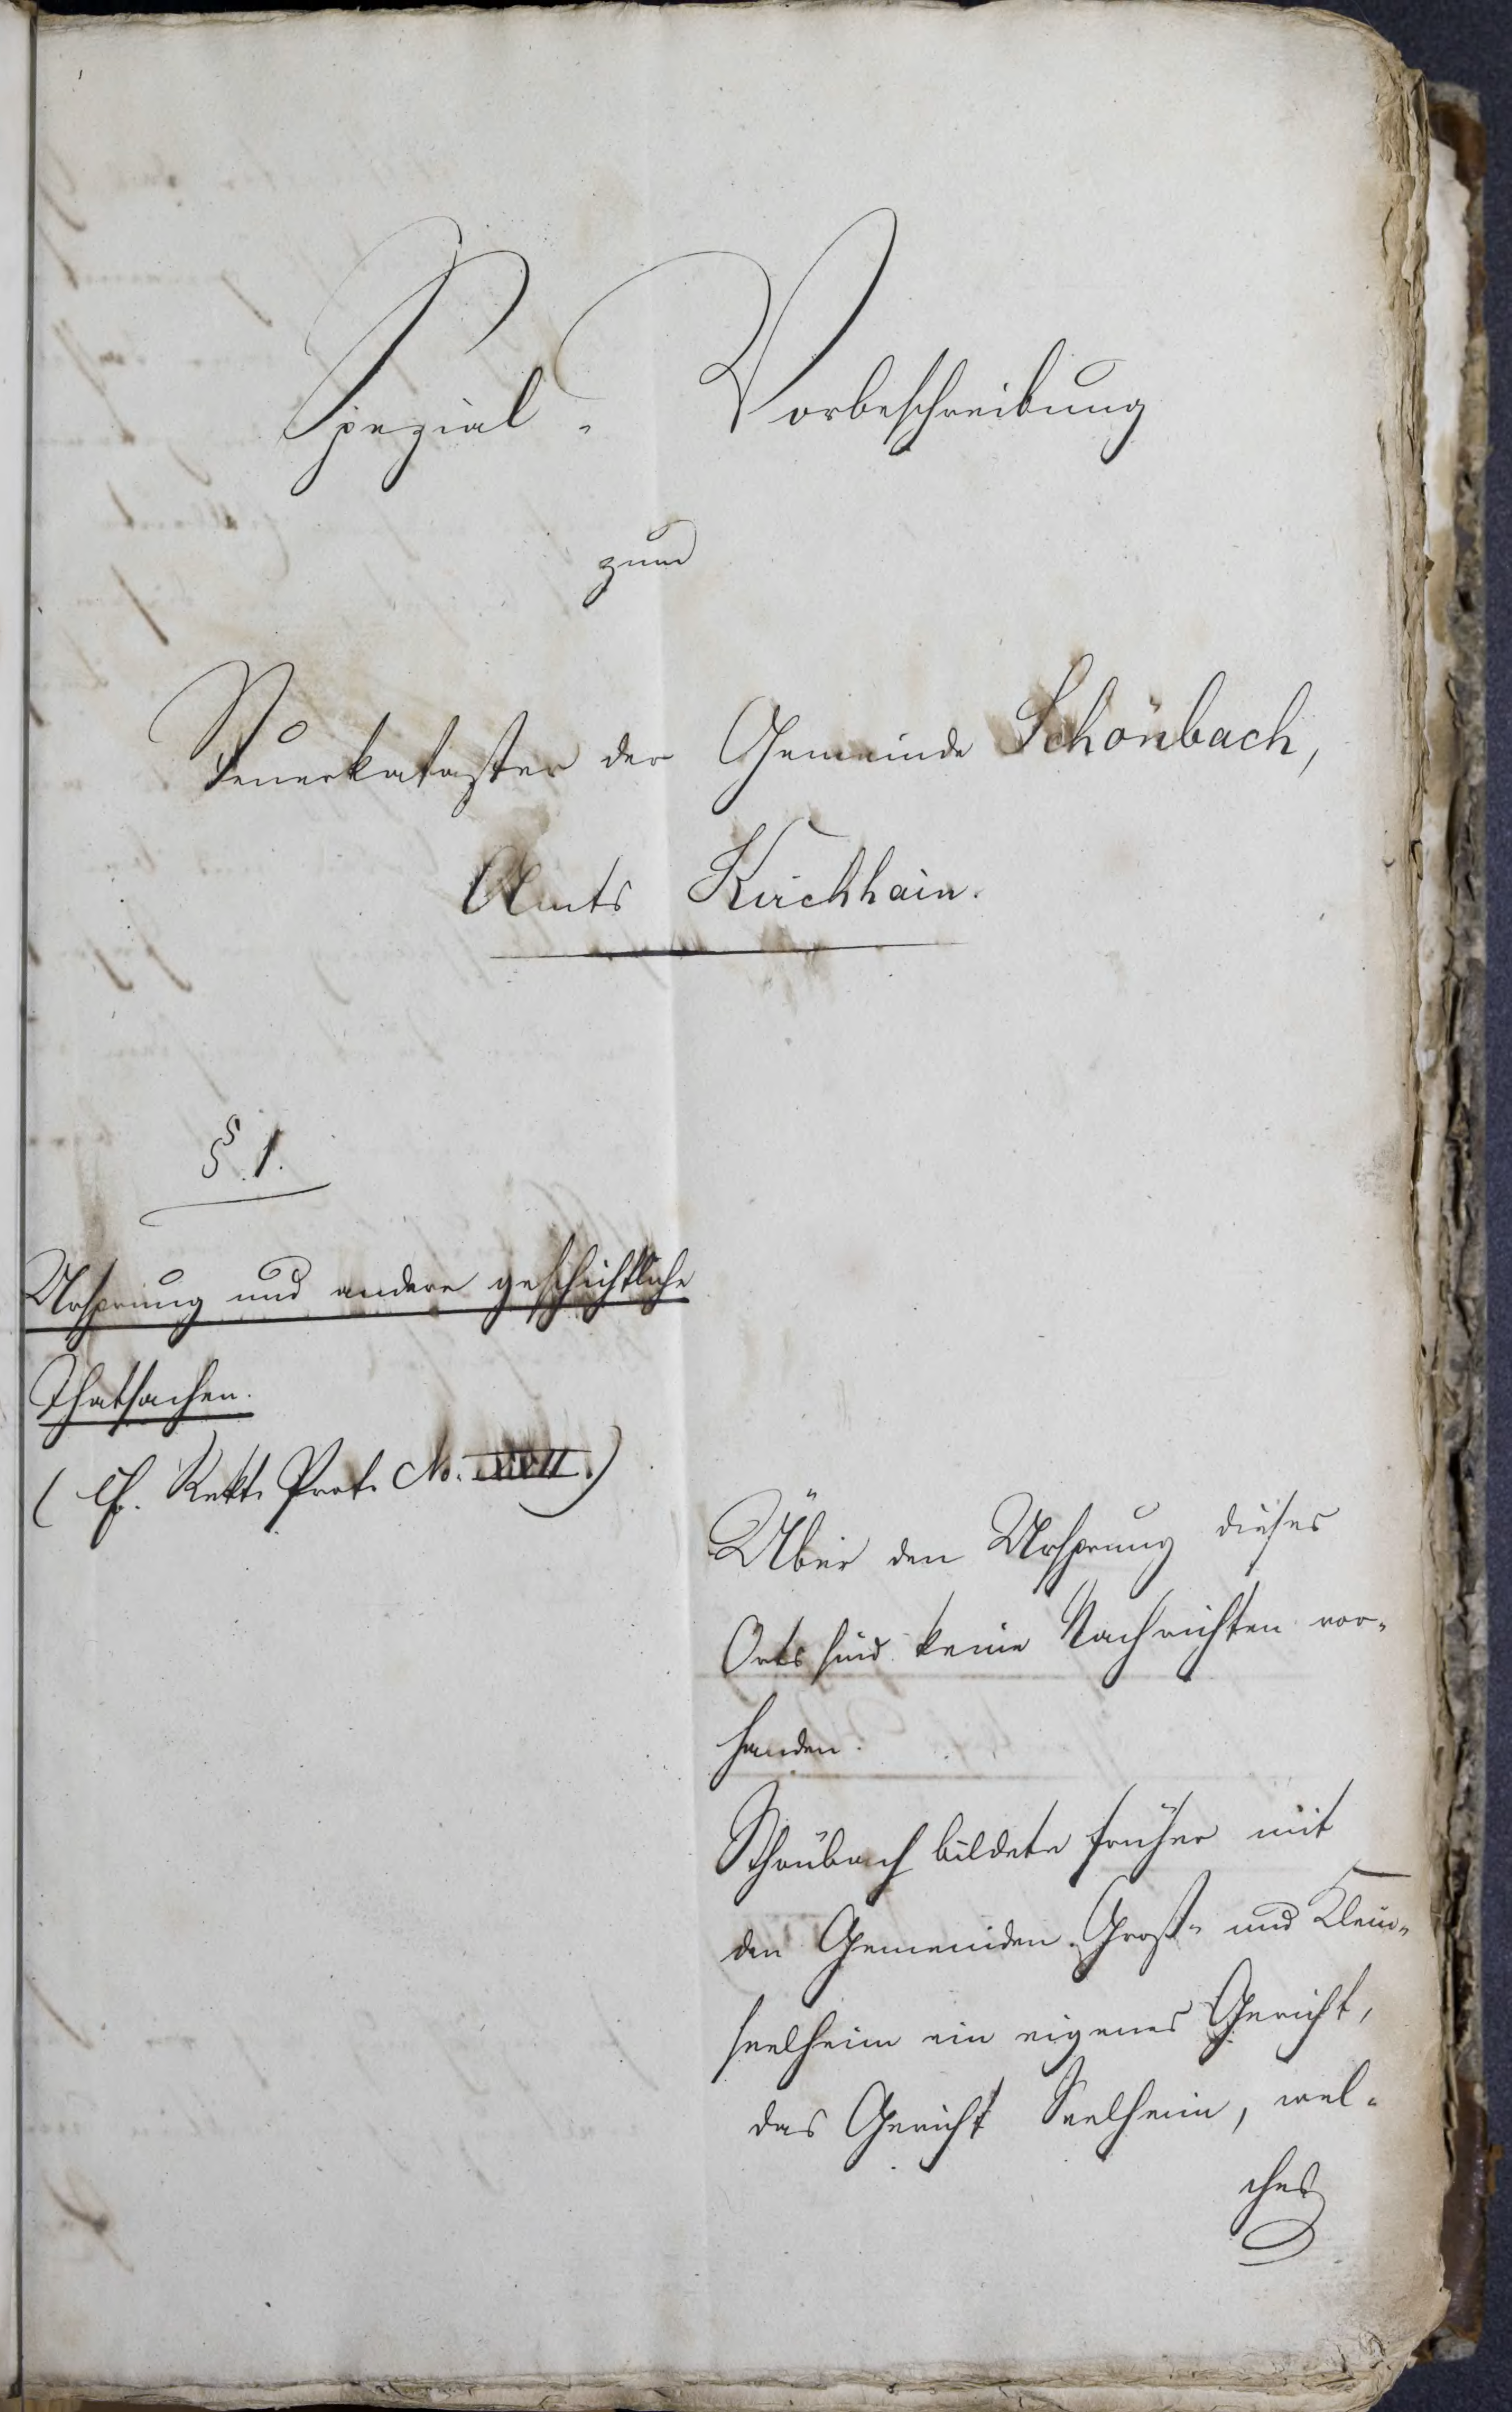 Spezial-Vorbeschreibung
zum
Steuerkataster der Gemeinde Schönbach,
Amts Kirchhain.
§. 1.
Ursprung und andere geschichtliche
Thatsachen.
(cf. Rekt. Prot. No. XVII.)
Über den Ursprung dieses
Orts sind keine Nachrichten vor-
handen.
Schönbach bildete früher mit
den Gemeinden Groß- und Klein-
seelheim ein eigenes Gericht,
das Gericht Seelheim, wel-
ches